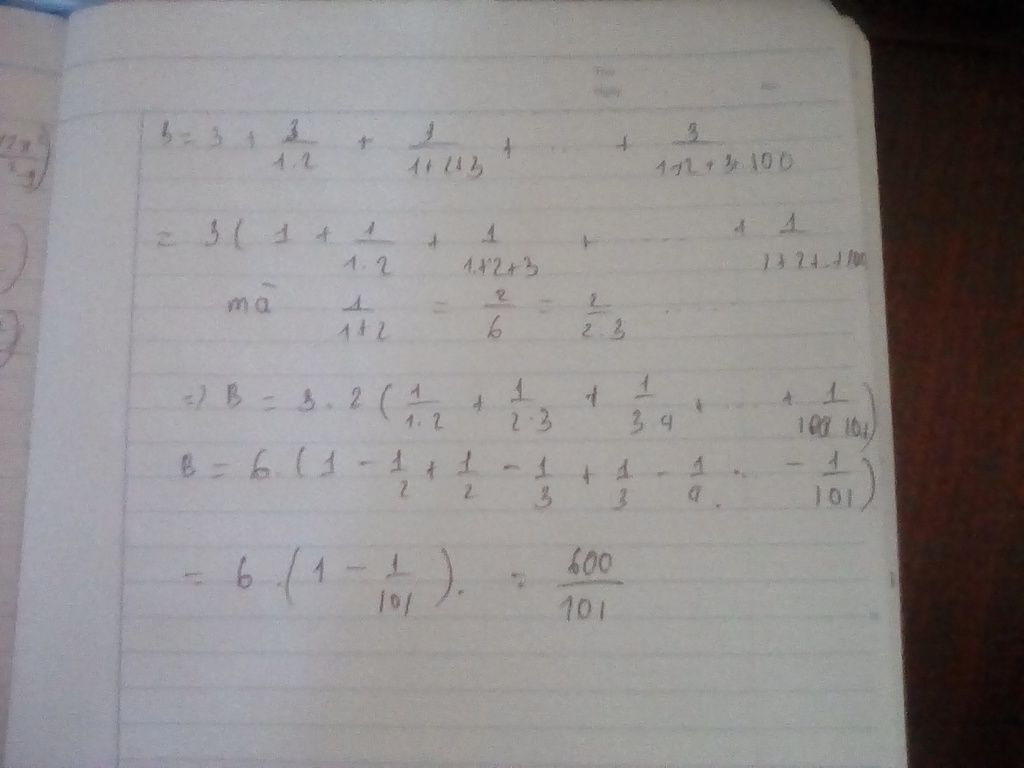 B = 3 + 3/(1.2) + 3/(1+2+3) + ... + 3/(1+2+3+.100)
= 3 ( 1 + 1/(1.2) + 1/(1+2+3) + ...... + 1/(1+2+..+100)
mà 1/(1+2) = 2/6 = 2/(2.3) .....
=> B = 3.2 ( 1/(1.2) + 1/(2.3) + 1/(3.4) + ... + 1/(100.101) )
B = 6.( 1 - 1/2 + 1/2 - 1/3 + 1/3 - 1/4 ... - 1/101 )
= 6.( 1 - 1/101 ). = 600/101